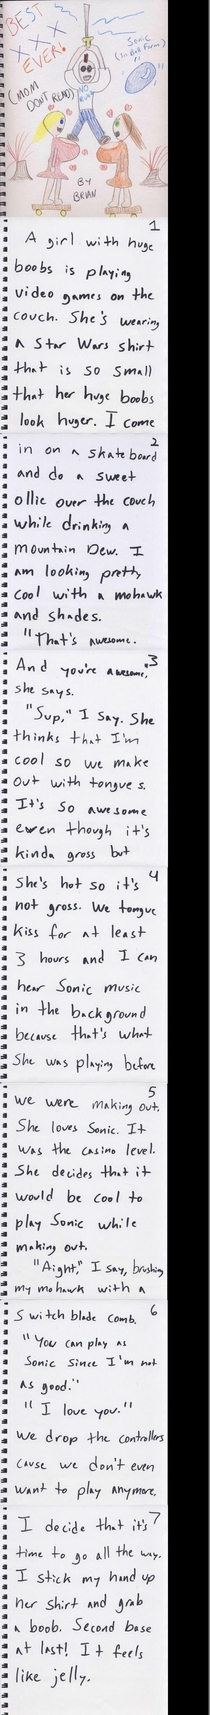 BEST
XXX
EVER!
(MOM
DON'T READ)
NO
Sonic
(In Ball Form)
BY
BRIAN
1
A girl with huge
boobs is playing
video games on the
couch. She's wearing
a Star Wars shirt
that is so small
that her huge boobs
look huger. I come
2
in on a skateboard
and do a sweet
ollie over the couch
while drinking a
Mountain Dew. I
am looking pretty
cool with a mohawk
and shades.
"That's awesome.
3
And you're awesome,"
she says.
"Sup," I say. She
thinks that I'm
cool so we make
out with tongues.
It's so awesome
even though it's
kinda gross but
4
she's hot so it's
not gross. We tongue
kiss for at least
3 hours and I can
hear Sonic music
in the background
because that's what
she was playing before
5
we were making out.
She loves Sonic. It
was the casino level.
She decides that it
would be cool to
play Sonic while
making out.
"Aight," I say, brushing
my mohawk with a
6
switch blade comb.
"You can play as
Sonic since I'm not
as good."
"I love you."
We drop the controllers
cause we don't even
want to play anymore.
7
I decide that it's
time to go all the way.
I stick my hand up
her shirt and grab
a boob. Second base
at last! It feels
like jelly.